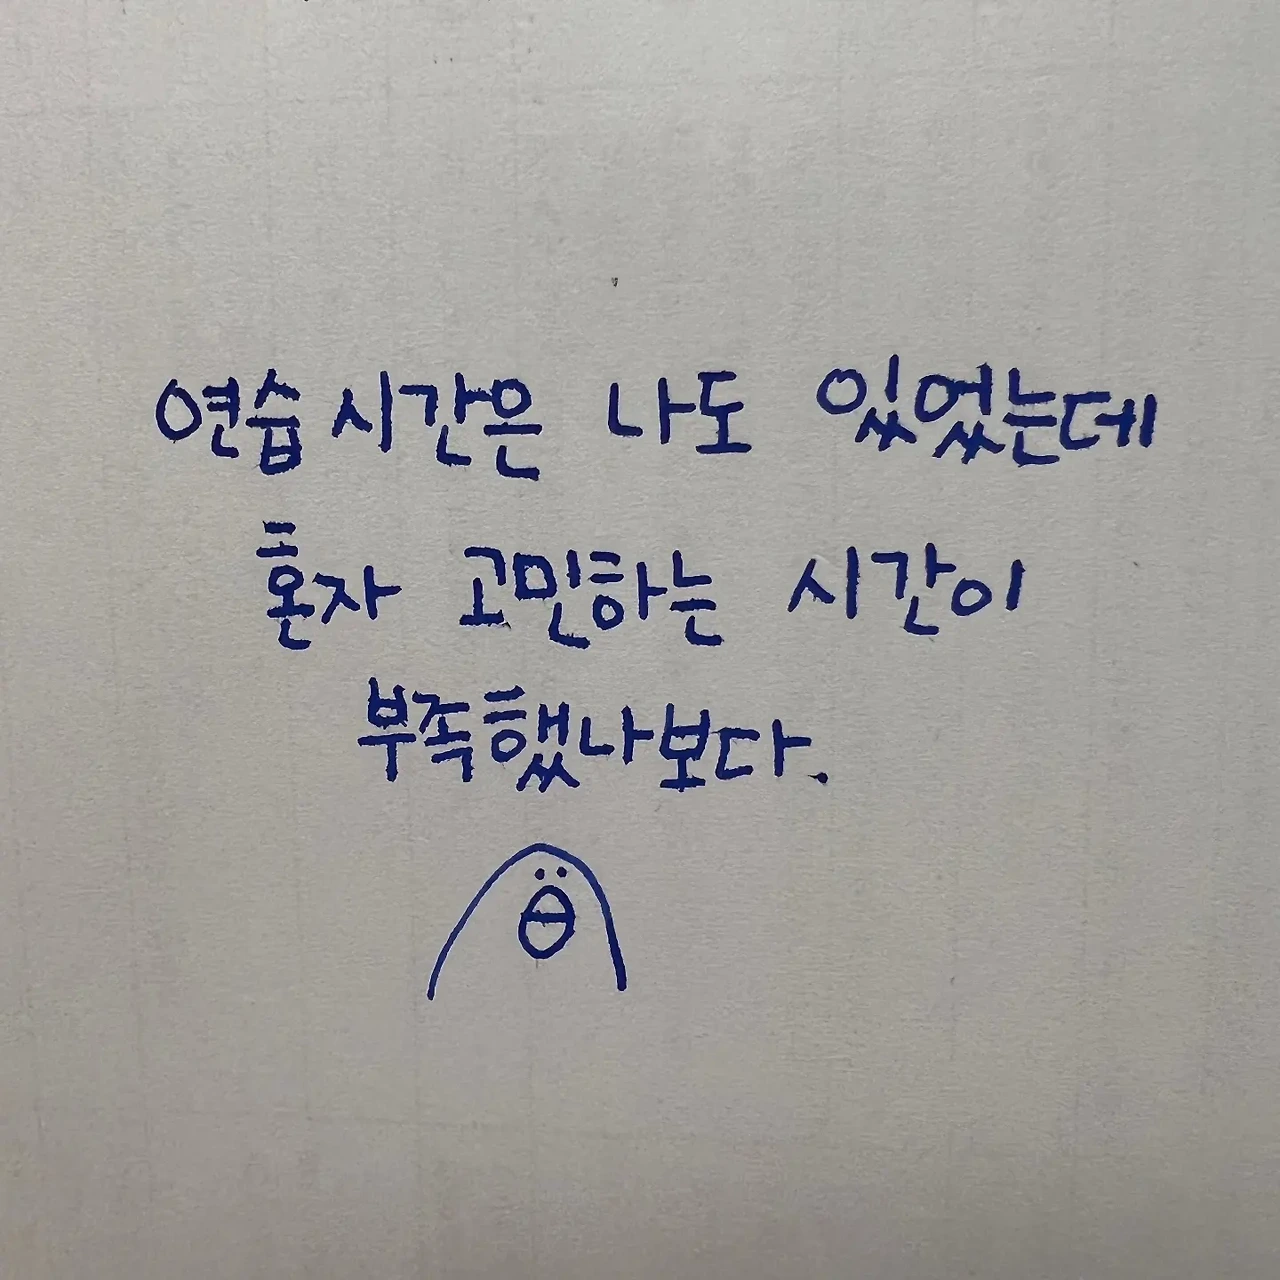 연습시간은 나도 있었는데
혼자 고민하는 시간이
부족했나보다.